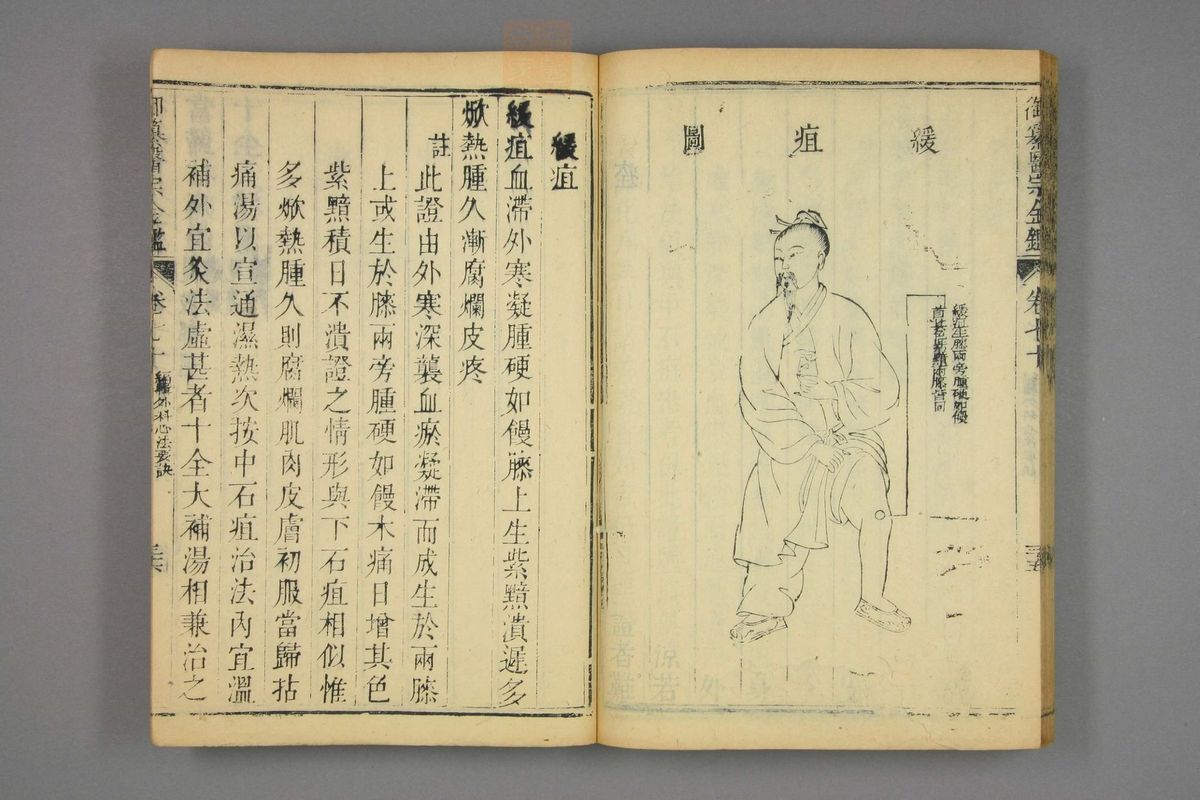 御纂醫宗金鑑 卷七十
緩疽圖
緩疽生膝兩旁腫硬如饅
緩疽
緩疽血滯外寒凝腫硬如饅膝上生紫黯潰遲多
焮熱腫久漸腐爛皮疼
註此證由外寒深襲血瘀凝滯而成生於兩膝
上或生於膝兩旁腫硬如饅木痛日增其色
紫黯積日不潰證之情形與下石疽相似惟
多焮熱腫久則腐爛肌肉皮膚初服當歸拈
痛湯以宣通濕熱次按中石疽治法內宜溫
補外宜灸法虛甚者十全大補湯相兼治之
御纂醫宗金鑑 卷七十 編輯外科心法要訣